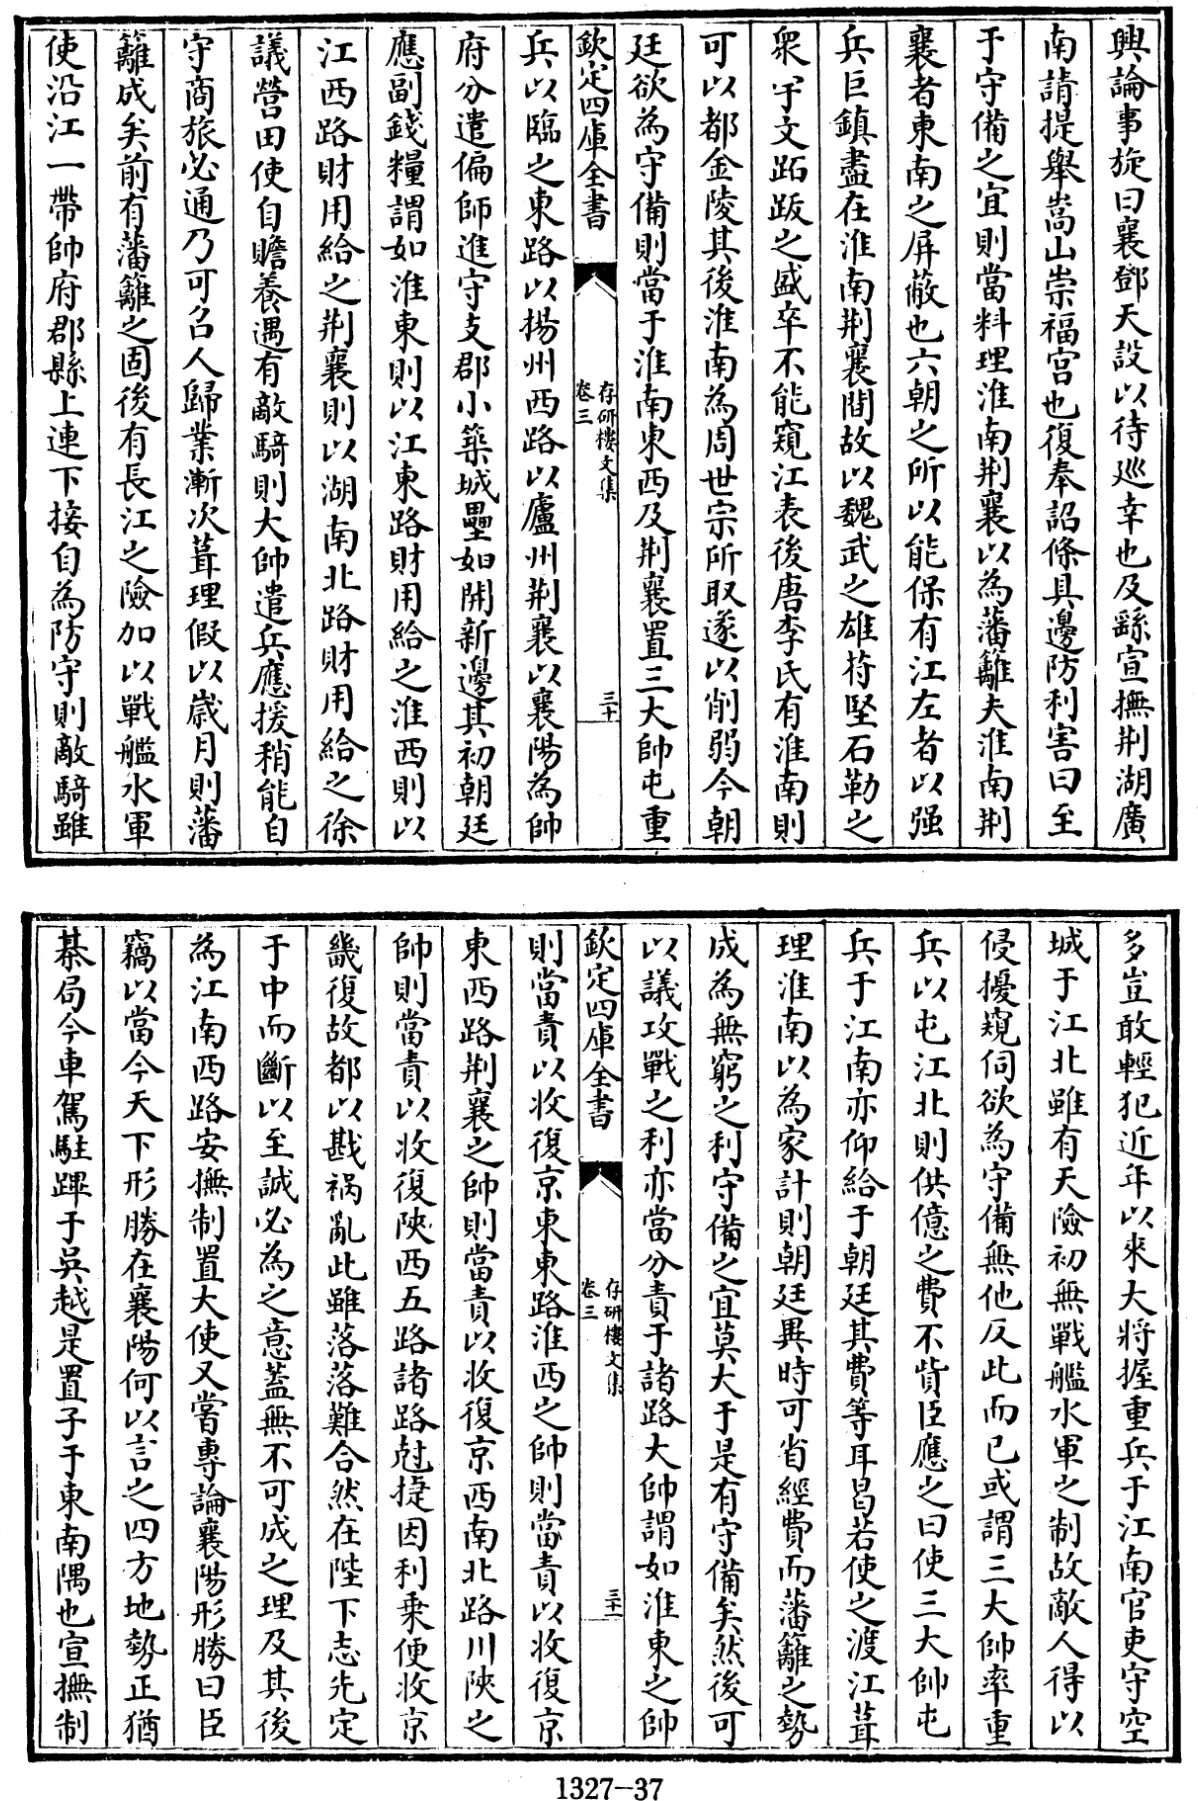 興論事旋曰襄鄧天設以待巡幸也及繇宣撫荆湖廣
南請提舉嵩山崇福宫也復奉詔條具邊防利害曰至
于守備之宜則當料理淮南荆襄以為藩籬夫淮南荆
襄者東南之屏蔽也六朝之所以能保有江左者以强
兵巨鎮盡在淮南荆襄間故以魏武之雄苻堅石勒之
衆宇文跖跋之盛卒不能窺江表後唐李氏有淮南則
可以都金陵其後淮南為周世宗所取遂以削弱今朝
廷欲為守備則當于淮南東西及荆襄置三大帥屯重
欽定四庫全書
存研樓文集
卷三
三十
兵以臨之東路以揚州西路以廬州荆襄以襄陽為帥
府分遣偏師進守支郡小築城壘如開新邊其初朝廷
應副錢糧謂如淮東則以江東路財用給之淮西則以
江西路財用給之荆襄則以湖南北路財用給之徐
議營田使自贍養遇有敵騎則大帥遣兵應援稍能自
守商旅必通乃可召人歸業漸次葺理假以歲月則藩
籬成矣前有藩籬之固後有長江之險加以戰艦水軍
使沿江一帶帥府郡縣上連下接自為防守則敵騎雖
多豈敢輕犯近年以來大將握重兵于江南官吏守空
城于江北雖有天險初無戰艦水軍之制故敵人得以
侵擾窺伺欲為守備無他反此而已或謂三大帥率重
兵以屯江北則供億之費不貲臣應之曰使三大帥屯
兵于江南亦仰給于朝廷其費等耳曷若使之渡江葺
理淮南以為家計則朝廷異時可省經費而藩籬之勢
成為無窮之利守備之宜莫大于是有守備矣然後可
以議攻戰之利亦當分責于諸路大帥謂如淮東之帥
欽定四庫全書
存研樓文集
卷三
三十一
則當責以收復京東東路淮西之帥則當責以收復京
東西路荆襄之帥則當責以收復京西南北路川陜之
帥則當責以收復陜西五路諸路尅捷因利乗便收京
畿復故都以戡禍亂此雖落落難合然在陛下志先定
于中而斷以至誠必為之意蓋無不可成之理及其後
為江南西路安撫制置大使又嘗專論襄陽形勝曰臣
竊以當今天下形勝在襄陽何以言之四方地勢正猶
棊局今車駕駐蹕于吳越是置子于東南隅也宣撫制
1327-37